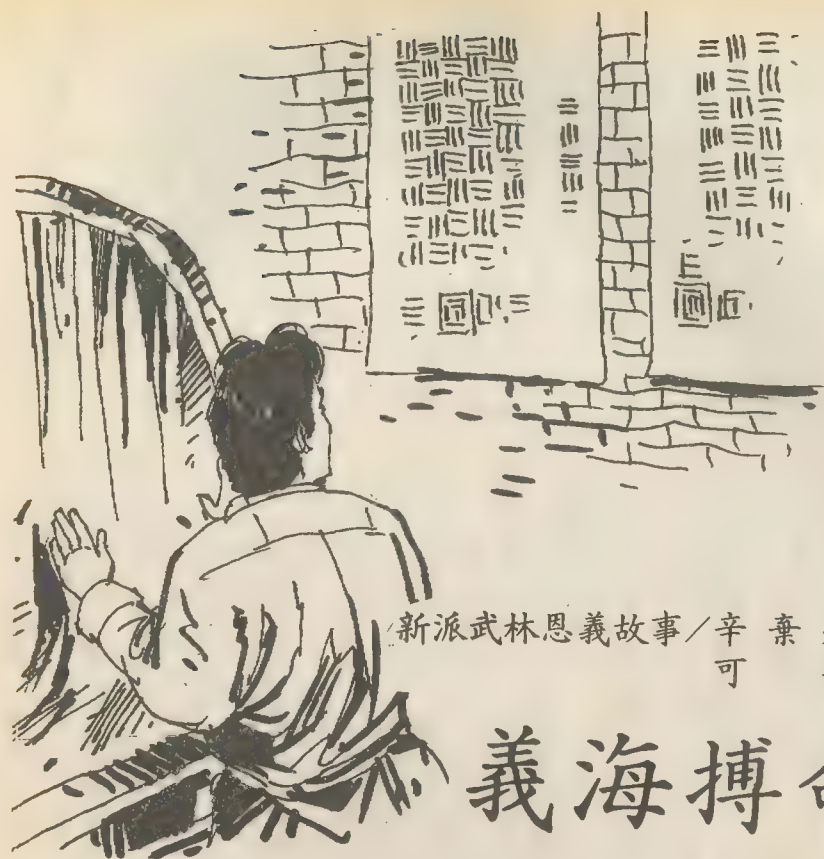 新派武林恩義故事/辛棄
可
義海搏